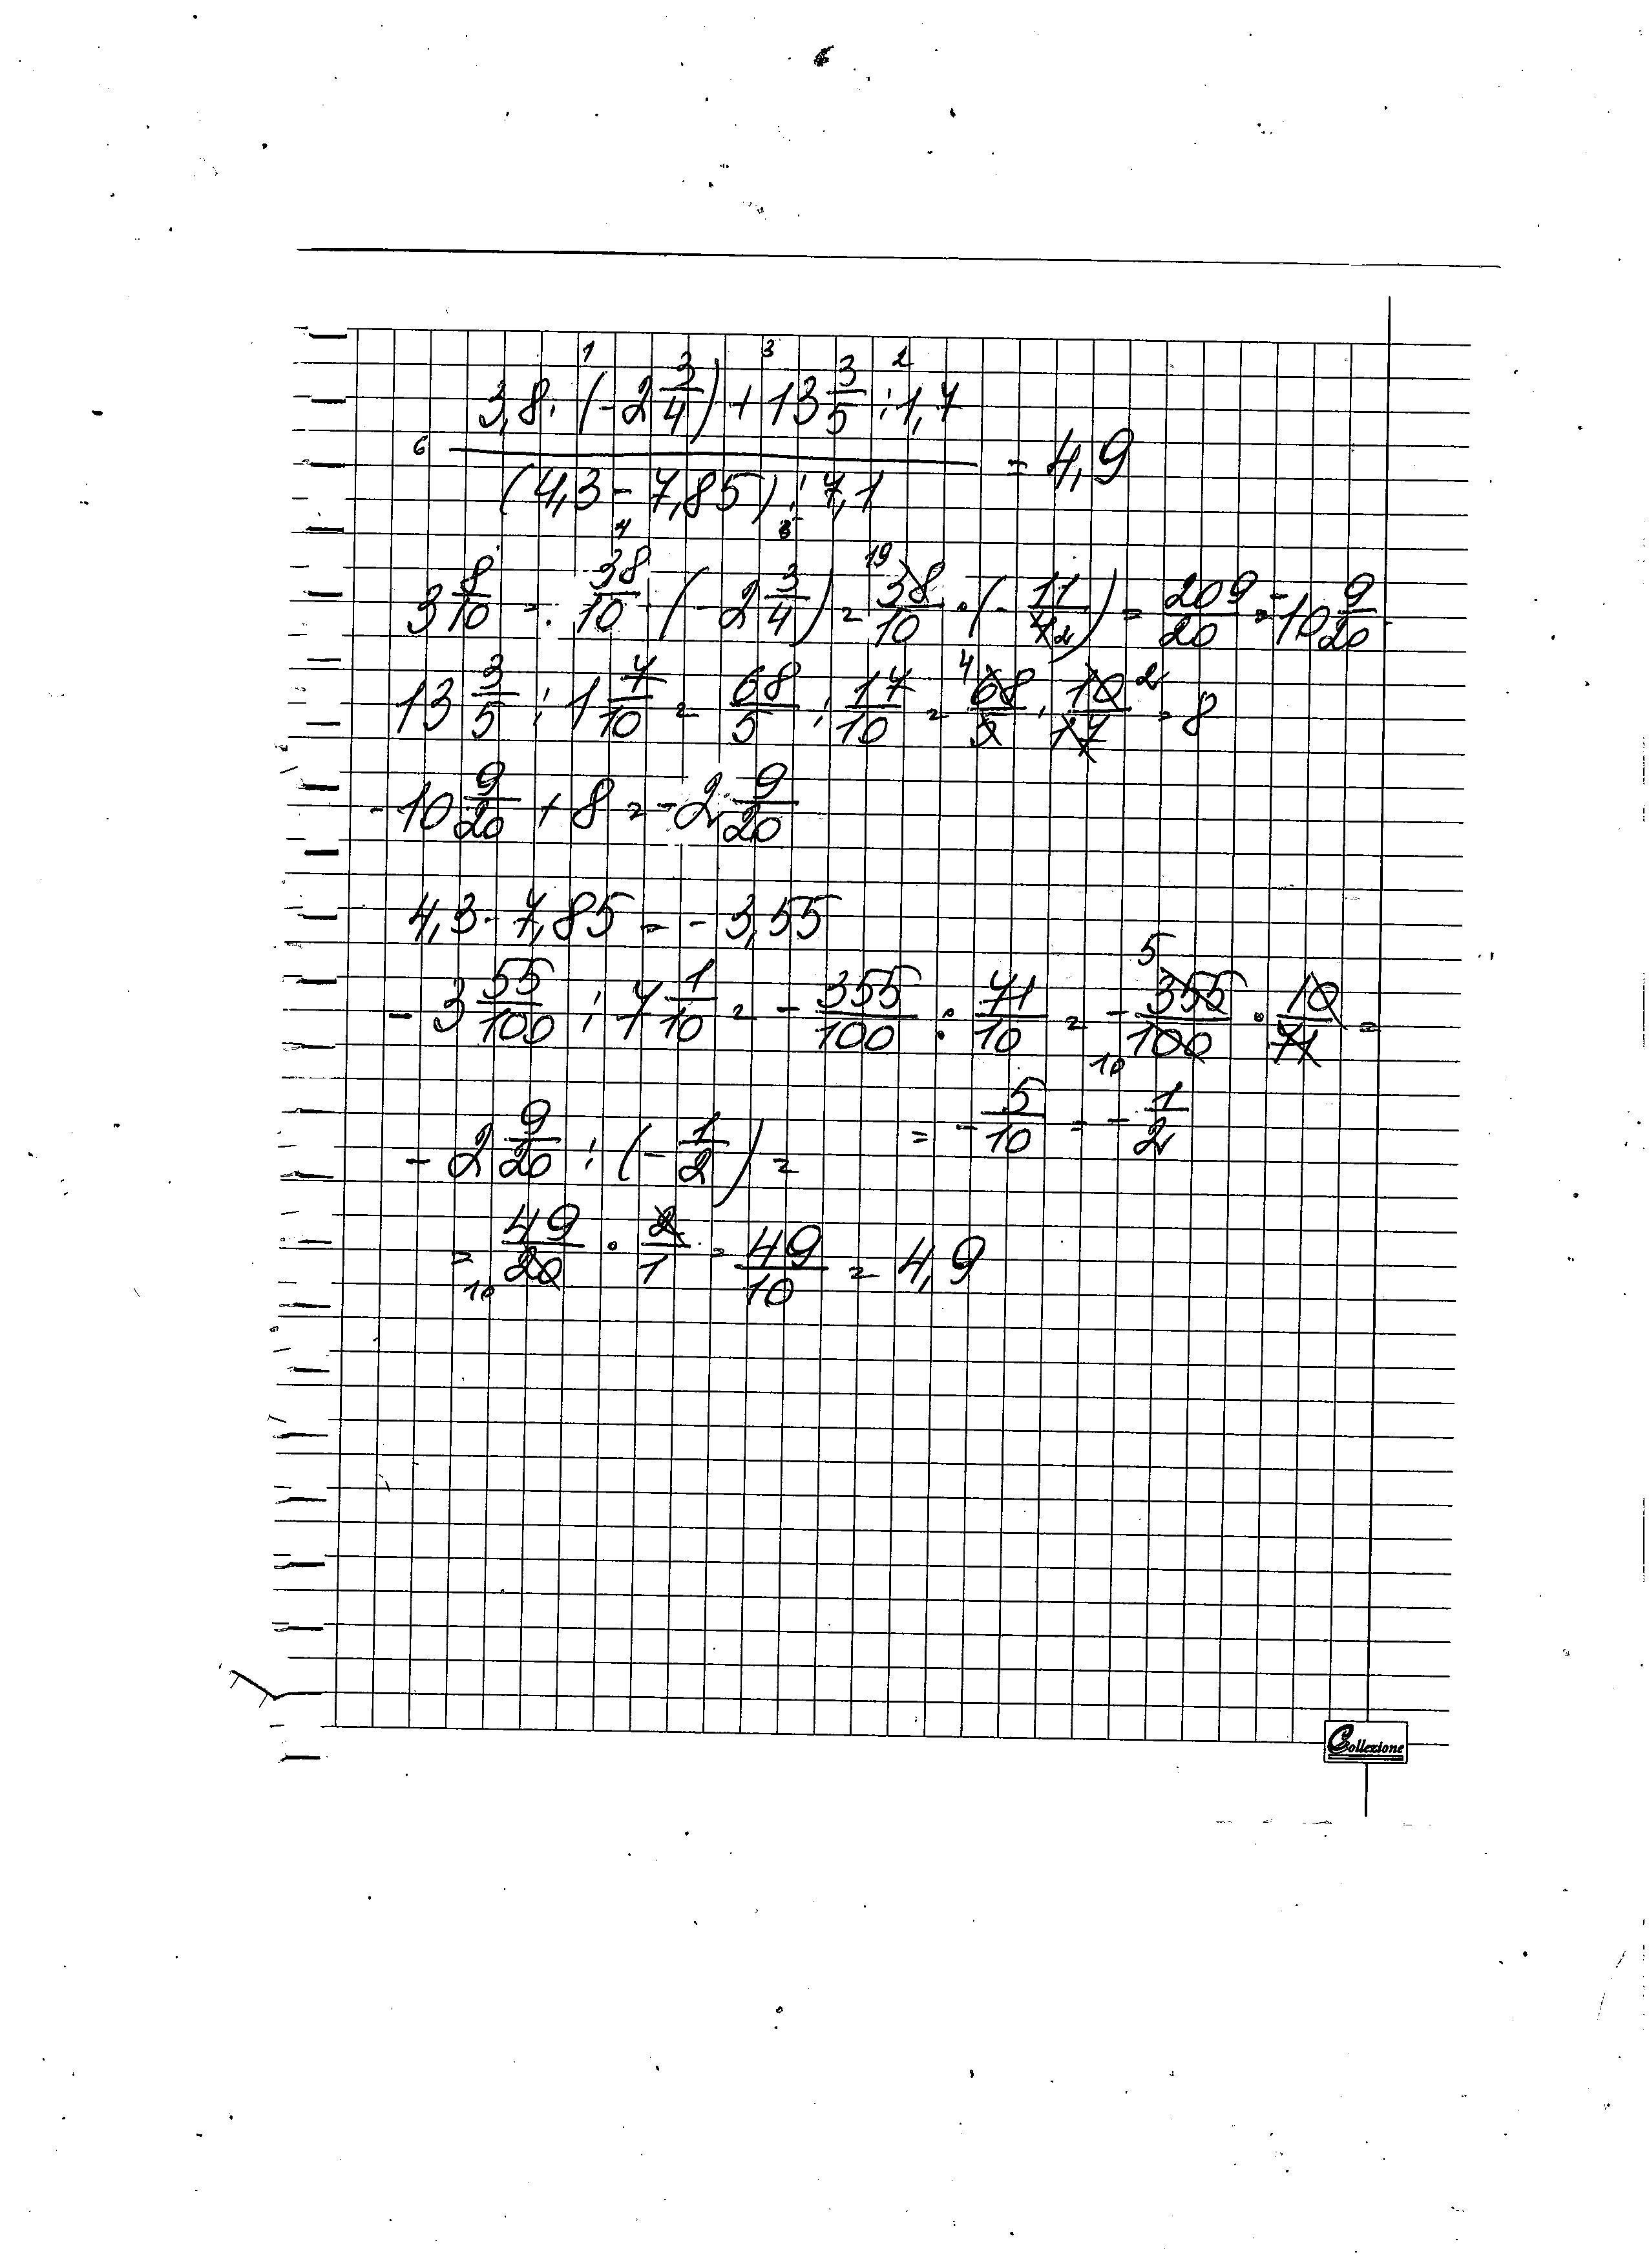 6
1 3 2
3,8 · (-2 3/4) + 13 3/5 : 1,7
6 ――― = 4,9
(4,3 - 7,85) : 7,1
4 5
3 8/10 = 38/10 · (-2 3/4) = 38/10 · (-11/4) = 209/20 = -10 9/20
13 3/5 : 1 7/10 = 68/5 : 17/10 = 68/5 · 10/17 = 8
-10 9/20 + 8 = -2 9/20
4,3 - 7,85 = -3,55
-3 55/100 : 7 1/10 = -355/100 : 71/10 = -355/100 · 10/71 =
= -5/10 = -1/2
-2 9/20 : (-1/2) =
= 49/20 · 2/1 = 49/10 = 4,9
Collezione